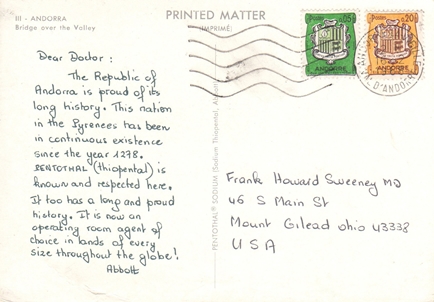 III - ANDORRA
Bridge over the Valley
PRINTED MATTER
(IMPRIMÉ)
Dear Doctor :
The Republic of
Andorra is proud of its
long history. This nation
in the Pyrenees has been
in continuous existence
since the year 1278.
PENTOTHAL (thiopental) is
known and respected here.
It too has a long and proud
history. It is now an
operating room agent of
choice in lands of every
size throughout the globe!
Abbott
PENTOTHAL® SODIUM (Sodium Thiopental, Abbott)
05
ANDORRE
0,20
ANDORRE
D'ANDORRE
Frank Howard Sweeney MD
46 S Main St
Mount Gilead ohio 43338
USA